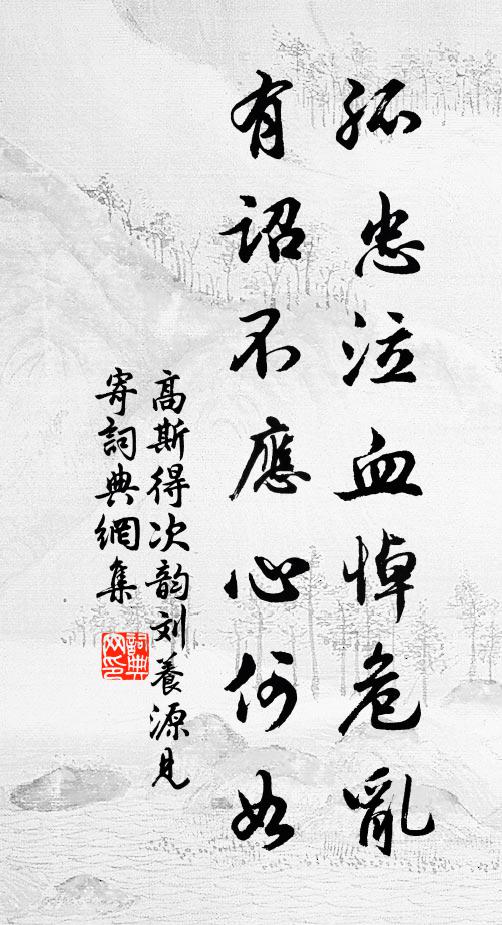 孤忠泣血悼危亂
有詔不應心何如
高斯得次韵刘養源見
寄詞典網集
詞典
网印